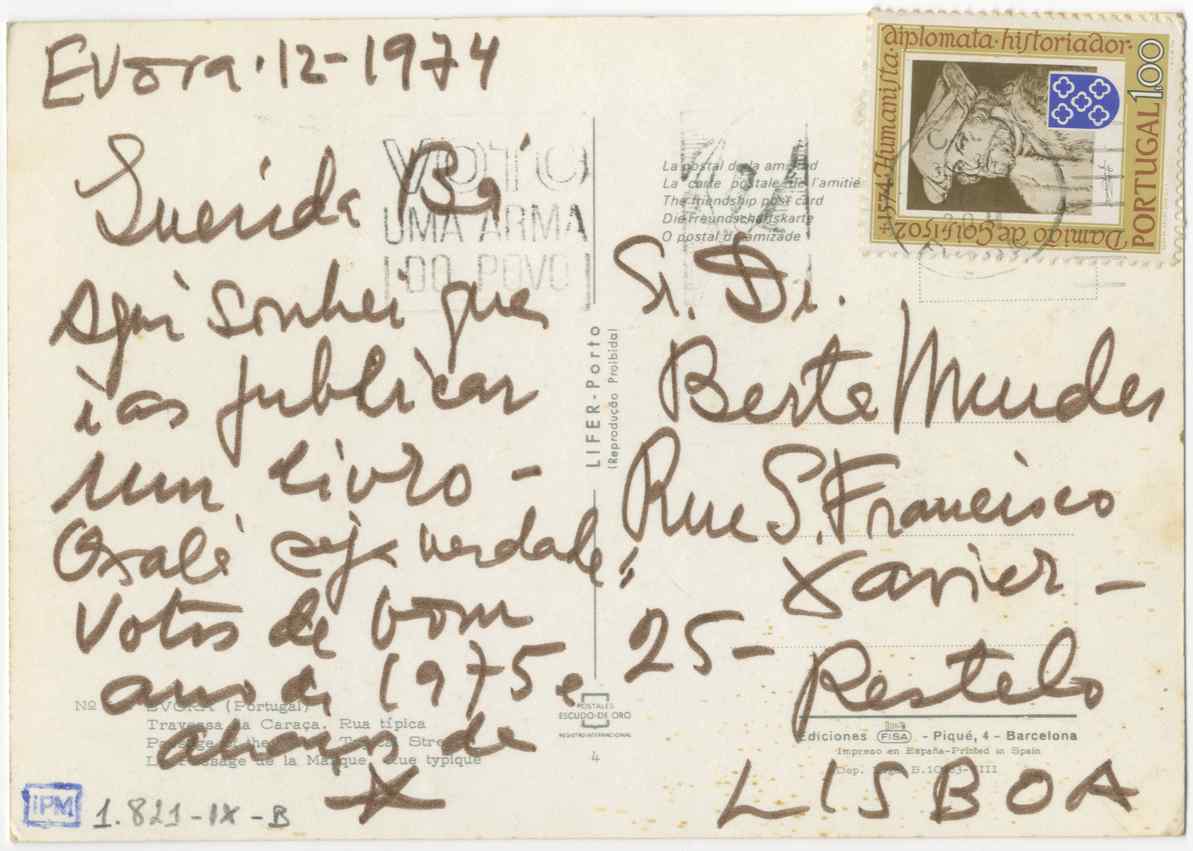 Evora·12-1974
Querida Ba
Aqui sonhei que
ias publicar
um livro -
Oxalá seja verdade,
Votos de bom
ano de 1975 e
abraço de
Sr. Dr.
Berta Mendes
Rua S. Francisco
Xavier -
25 -
Restelo
LISBOA
VOTO
UMA ARMA
DO POVO
La postal de la amistad
La carte postale de l'amitié
The friendship post card
Die Freundschaftskarte
O postal da amizade
diplomata·historiador·
+1574·Humanista·
Damião de Gois 1502
PORTUGAL 1.00
LIFER-Porto
(Reprodução Proibida)
Nº
EVORA (Portugal)
Travessa da Caraça. Rua típica
Passage of the Typical Street
Le Passage de la Masque. Rue typique
POSTALES
ESCUDO-DE ORO
REGISTRO INTERNACIONAL
4
Ediciones FISA - Piqué, 4 - Barcelona
Impreso en España-Printed in Spain
Dep. B. III
IPM
1.821-IX-B